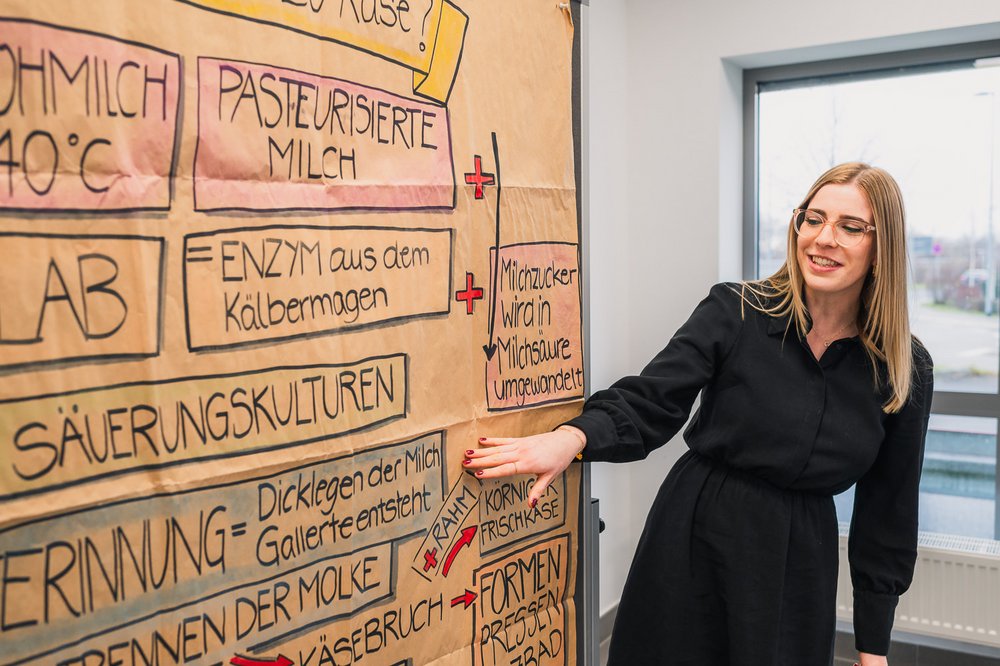 zu Käse?
OHMILCH
40°C
PASTEURISIERTE
MILCH
+
AB
= ENZYM aus dem
Kälbermagen
+
Milchzucker
wird in
Milchsäure
umgewandelt
SÄUERUNGSKULTUREN
ERINNUNG = Dicklegen der Milch
Gallerte entsteht
+ RAHM
KÖRNIGER
FRISCHKÄSE
RENNEN DER MOLKE
KÄSEBRUCH
FORMEN
PRESSEN
ZBAD